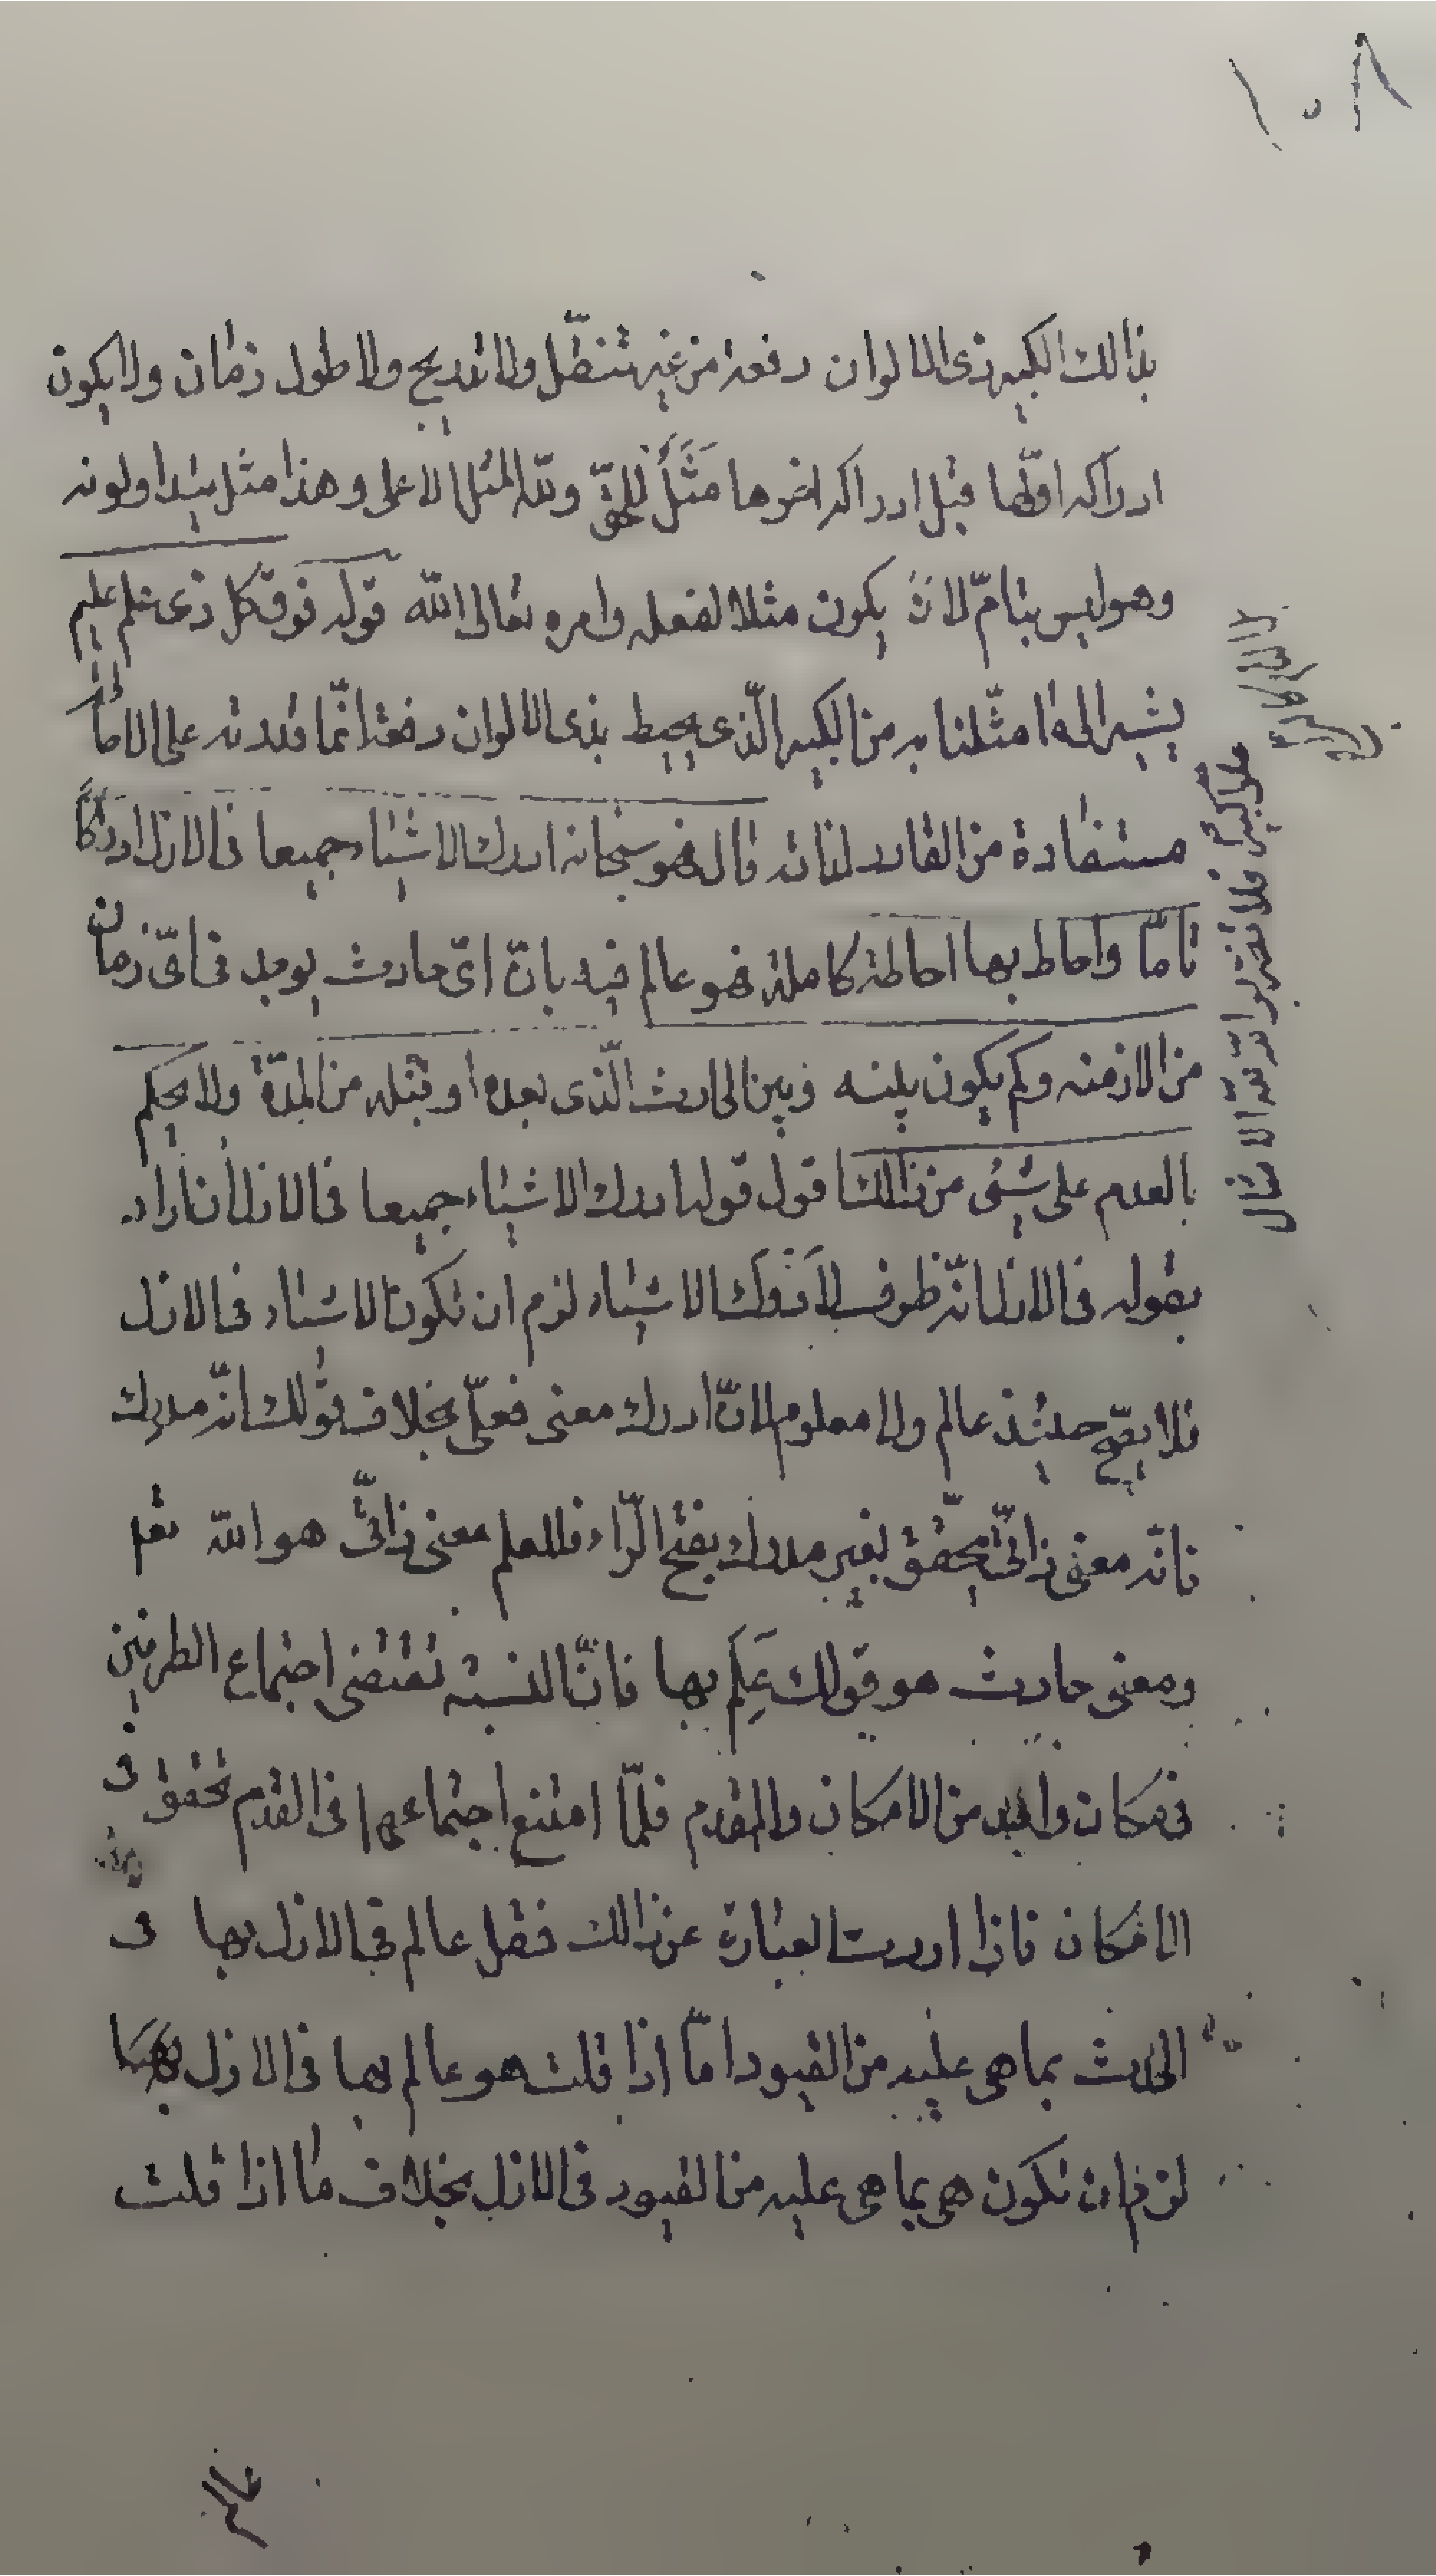 ١٠٨
بذالك الكبير ذى الالوان دفعة من غير تنظّل ولا تدريج ولا طول زمان ولا يكون
ادراكه اوّلها قبل ادراكه اخرها مَثَلٌ للحقّ وللّه المثل الاعلى وهذا مثل لونه
وهو ليس بتامّ لان يكون مثلا لفعله وامره تعالى اللّه قوله فوق كل ذى علم عليم
يشير الى ما مثّلنا به من الكبير الّذى يحيط بذى الالوان دفعة انّما قدرته على الاحاطة
مستفادة من القادر لذاته قال فهو سبحانه ادرك الاشياء جميعا فى الازل ادراكًا
تامّا واحاط بها احاطة كاملة فهو عالم فيه بانّ اىّ حادث يوجد فى اىّ زمان
من الازمنه وكم يكون بينه وبين الحادث الّذى بعده او قبله من المدّة ولا يحكم
بالعدم على شيئ من ذالك اقول قوله ادرك الاشياء جميعا فى الازل ان اراد
بقوله فى الازل انّه ظرف لادرك الاشياء لزم ان تكون الاشياء فى الازل
فلا يصّح حينئذ عالم ولا معلوم لانّ ادرك معنى فعلىّ بخلاف قولك انّه مدرك
فانّه معنى ذاتىّ يتحقّق بغير مدرك بفتح الرّاء فللعلم معنى ذاتىّ هو اللّه تعم
ومعنى حادث هو قولك عَلِمَ بها فانّ النسبة تقتضى اجتماع الطرفين
فى مكان واحد من الامكان والقدم فلمّا امتنع اجتماعهما فى القدم تحقق فى
الامكان فاذا اردت العبارة عن ذالك فقل عالم فى الازل بها فى
الحادث بما هى عليه من القيود امّا اذا قلت هو عالم بها فى الازل
لزم ان تكون هى بما هى عليه من القيود فى الازل بخلاف ما اذا قلت
علوّا كبيرا فلا تضربوا للّه الامثال
عالم